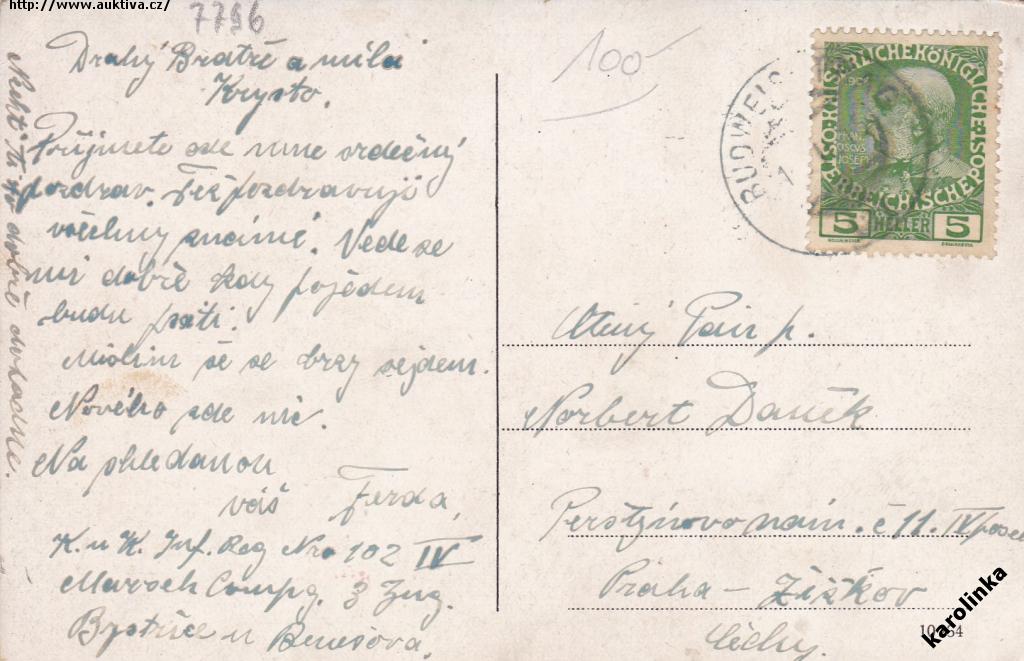 http://www.auktiva.cz/
7796
100
Drahý Bratře a milá
Krysto.
Přijmete ode mne srdečný
pozdrav. Též pozdravuji
všechny známé. Vede se
mi dobře kdy pojedem
budu psáti.
Myslim še se brzy sejdem.
Nového zde nic.
Na shledanou
váš Ferda,
K. u K. Inf. Reg Nro 102 IV
Marsch Compg. 3 Zug.
Bystřice u Benešova.
dobře
BUDWEIS
KAISERLICHE KÖNIGLICHE
ÖSTERREICHISCHE POST
5 HELLER 5
Ctěný Pán p.
Norbert Daněk
Perštýnovo nám. č 11. IV posch
Praha - Žižkov
Čechy.
karolinka